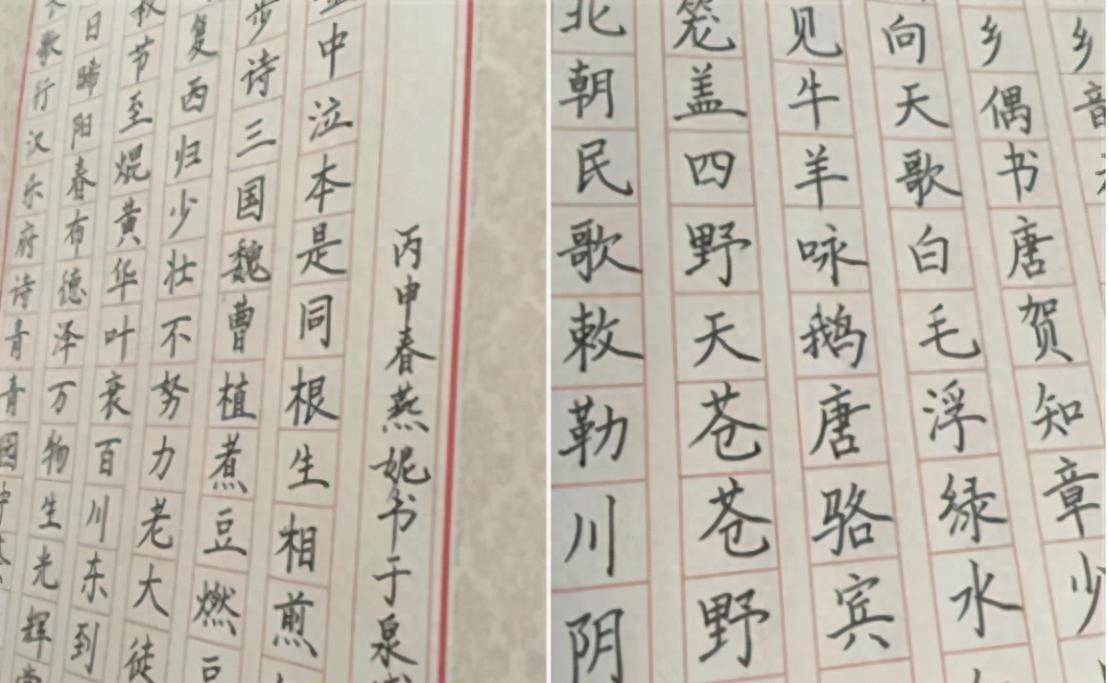 歌行汉乐府诗青青园中
日晞阳春布德泽万物生光辉常
秋节至焜黄华叶衰百川东到
复西归少壮不努力老大徒
步诗三国魏曹植煮豆燃豆
釜中泣本是同根生相煎
丙申春燕妮书于泉
北朝民歌敕勒川阴
笼盖四野天苍苍野
见牛羊咏鹅唐骆宾
向天歌白毛浮绿水
乡偶书唐贺知章少
乡音